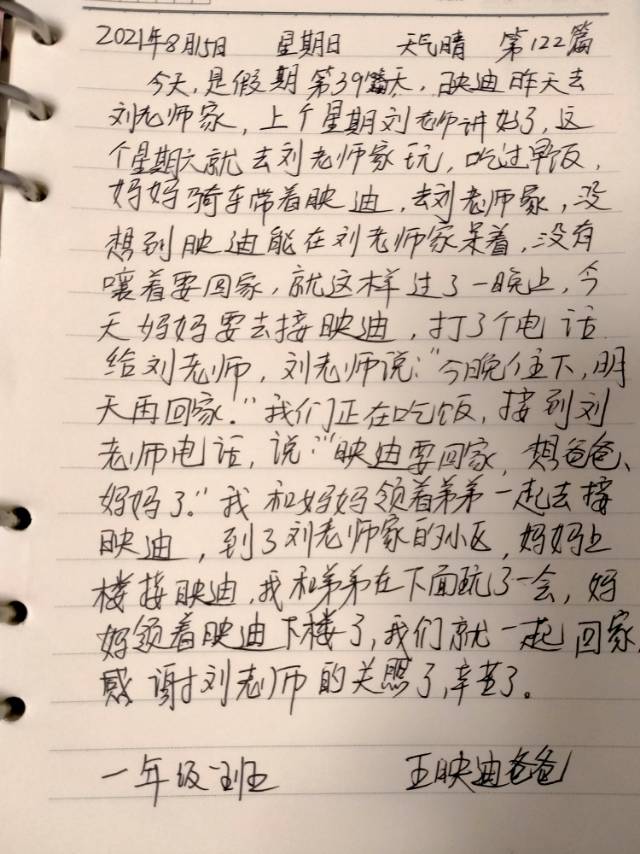 2021年8月15日 星期日 天气晴 第122篇
今天,是假期第39篇天,映迪昨天去
刘老师家,上个星期刘老师讲好了,这
个星期六就去刘老师家玩,吃过早饭,
妈妈骑车带着映迪,去刘老师家,没
想到映迪能在刘老师家呆着,没有
嚷着要回家,就这样过了一晚上,今
天妈妈要去接映迪,打了个电话
给刘老师,刘老师说:“今晚住下,明
天再回家.”我们正在吃饭,接到刘
老师电话,说:“映迪要回家,想爸爸、
妈妈了.”我和妈妈领着弟弟一起去接
映迪,到了刘老师家的小区,妈妈上
楼接映迪,我和弟弟在下面玩了一会,妈
妈领着映迪下楼了,我们就一起回家,
感谢刘老师的关照了,辛苦了。
一年级 班 王映迪爸爸